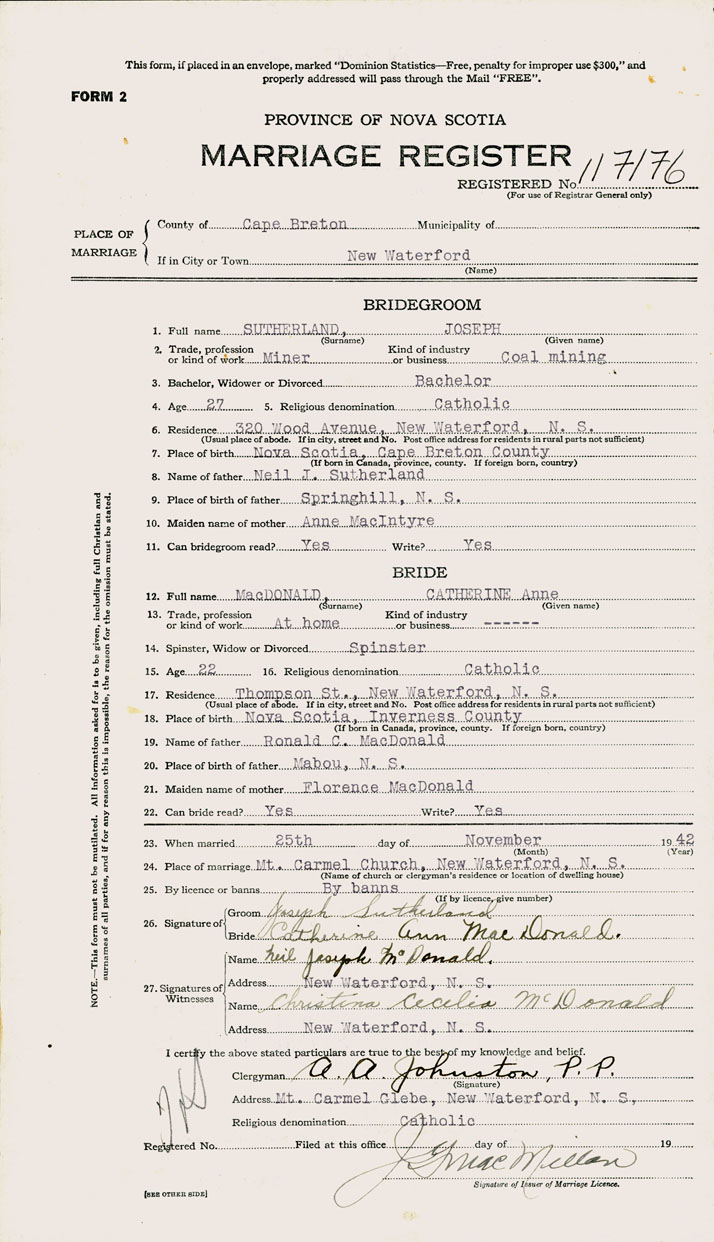 This form, if placed in an envelope, marked "Dominion Statistics—Free, penalty for improper use $300," and
properly addressed will pass through the Mail "FREE".
FORM 2
PROVINCE OF NOVA SCOTIA
MARRIAGE REGISTER
REGISTERED No. 117176
(For use of Registrar General only)
PLACE OF MARRIAGE
County of Cape Breton Municipality of
If in City or Town New Waterford
(Name)
BRIDEGROOM
1. Full name SUTHERLAND, JOSEPH
(Surname) (Given name)
2. Trade, profession or kind of work Miner Kind of industry or business Coal mining
3. Bachelor, Widower or Divorced Bachelor
4. Age 27 5. Religious denomination Catholic
6. Residence 320 Wood Avenue, New Waterford, N. S.
(Usual place of abode. If in city, street and No. Post office address for residents in rural parts not sufficient)
7. Place of birth Nova Scotia, Cape Breton County
(If born in Canada, province, county. If foreign born, country)
8. Name of father Neil J. Sutherland
9. Place of birth of father Springhill, N. S.
10. Maiden name of mother Anne MacIntyre
11. Can bridegroom read? Yes Write? Yes
BRIDE
12. Full name MacDONALD, CATHERINE Anne
(Surname) (Given name)
13. Trade, profession or kind of work At home Kind of industry or business ------
14. Spinster, Widow or Divorced Spinster
15. Age 22 16. Religious denomination Catholic
17. Residence Thompson St., New Waterford, N. S.
(Usual place of abode. If in city, street and No. Post office address for residents in rural parts not sufficient)
18. Place of birth Nova Scotia, Inverness County
(If born in Canada, province, county. If foreign born, country)
19. Name of father Ronald C. MacDonald
20. Place of birth of father Mabou, N. S.
21. Maiden name of mother Florence MacDonald
22. Can bride read? Yes Write? Yes
23. When married 25th day of November 1942
(Month) (Year)
24. Place of marriage Mt. Carmel Church, New Waterford, N. S.
(Name of church or clergyman's residence or location of dwelling house)
25. By licence or banns By banns
(If by licence, give number)
26. Signature of
Groom Joseph Sutherland
Bride Catherine Ann Mac Donald.
27. Signatures of Witnesses
Name Neil Joseph McDonald.
Address New Waterford, N. S.
Name Christina Cecilia McDonald
Address New Waterford, N. S.
I certify the above stated particulars are true to the best of my knowledge and belief.
Clergyman A. A. Johnston, P. P.
(Signature)
Address Mt. Carmel Glebe, New Waterford, N. S.,
Religious denomination Catholic
Registered No. Filed at this office day of 19
J G MacMillan
Signature of Issuer of Marriage Licence.
[SEE OTHER SIDE]
NOTE.—This form must not be mutilated. All information asked for is to be given, including full Christian and
surnames of all parties, and if for any reason this is impossible, the reason for the omission must be stated.